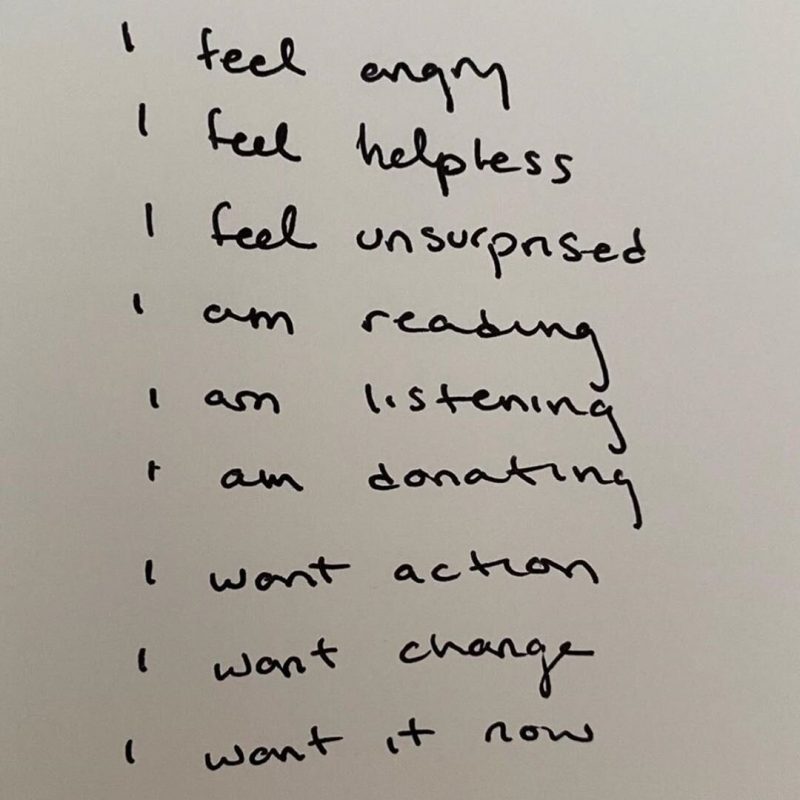 I feel angry
I feel helpless
I feel unsurprised
I am reading
I am listening
I am donating
I want action
I want change
I want it now